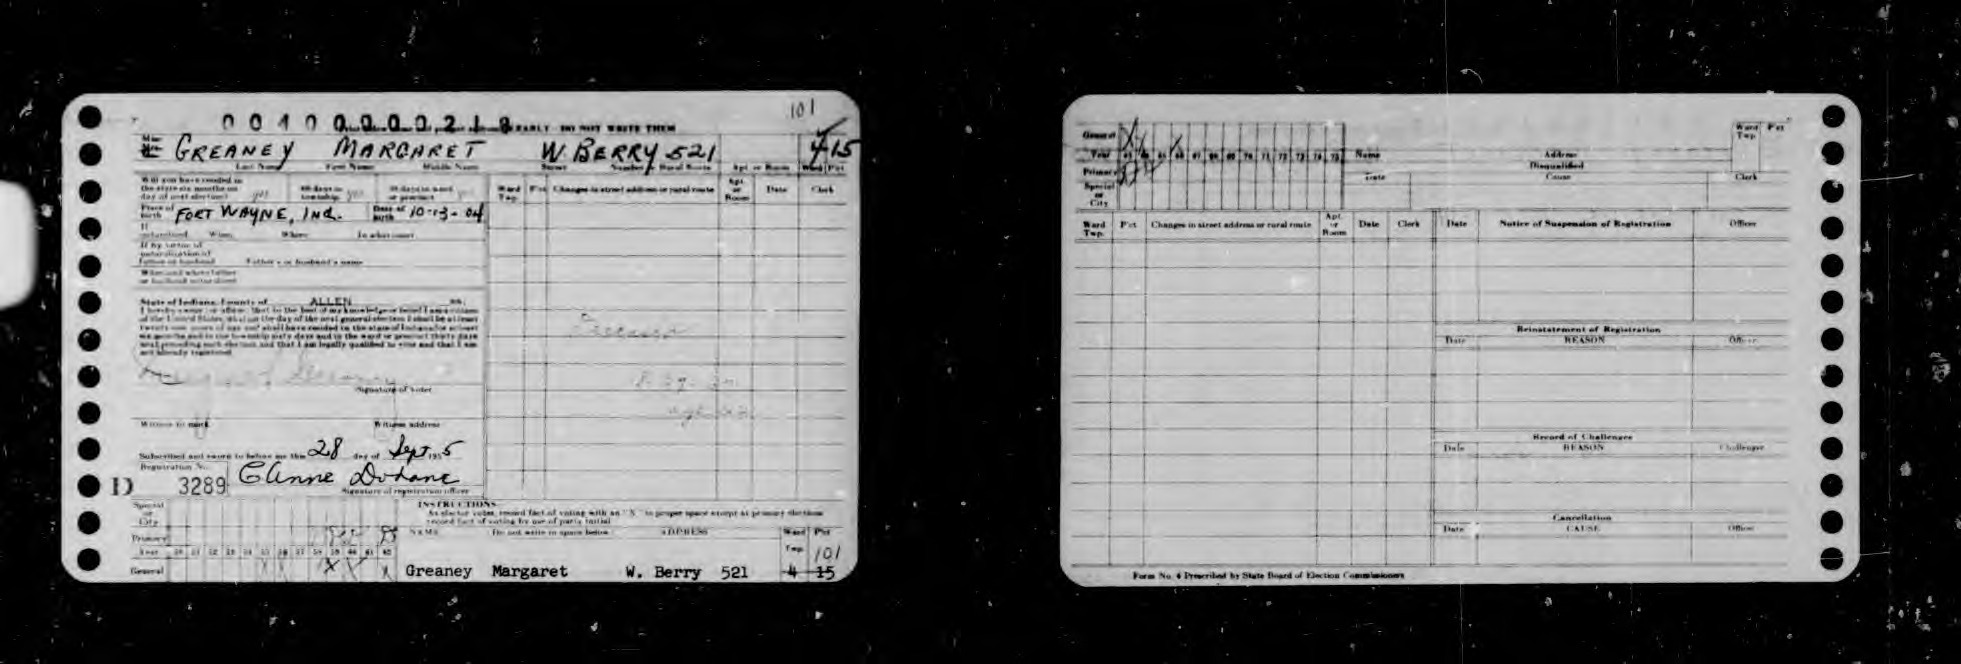 101
0 0 4 0 0 0 0 0 2 1 8 EARLY - DO NOT WRITE THEM
GREANEY MARGARET W. BERRY 521 4 15
Last Name First Name Middle Name Street Number, Rural Route Apt. or Room Ward Pct
Will you have resided in
the state six months on 60 days in 30 days in ward
day of next election? yes township yes or precinct yes
Ward Twp. Pct Changes in street address or rural route Apt. or Room Date Clerk
Place of birth FORT WAYNE, IND. Date of birth 10-13-04
If
naturalized When Where In what court
If by virtue of
naturalization of
father or husband Father's or husband's name
When and where father
or husband naturalized
State of Indiana, County of ALLEN ss:
I hereby swear (or affirm) that to the best of my knowledge or belief I am a citizen
of the United States, that on the day of the next general election I shall be at least
twenty-one years of age and shall have resided in the state of Indiana for at least
six months and in the township sixty days and in the ward or precinct thirty days
next preceding such election and that I am legally qualified to vote and that I am
not already registered
Deceased
Margaret Greaney
Signature of Voter
Witness to mark Witness address
Subscribed and sworn to before me this 28 day of Sept 1955
Registration No.
D 3289
Signature of registration officer
INSTRUCTIONS
As elector votes, record fact of voting with an "X" in proper space except at primary elections
record fact of voting by use of party initial
Special or City
Primary
NAME Do not write in space below ADDRESS Ward Twp. Pct
Year
General
101
Greaney Margaret W. Berry 521 4 15
General
Year
Primary
Special or City
Name Address Ward Twp. Pct
Disqualified
Date Cause Clerk
Ward Twp. Pct Changes in street address or rural route Apt. or Room Date Clerk
Date Notice of Suspension of Registration Officer
Reinstatement of Registration
Date REASON Officer
Record of Challenges
Date REASON Challenger
Cancellation
Date CAUSE Officer
Form No. 4 Prescribed by State Board of Election Commissioners